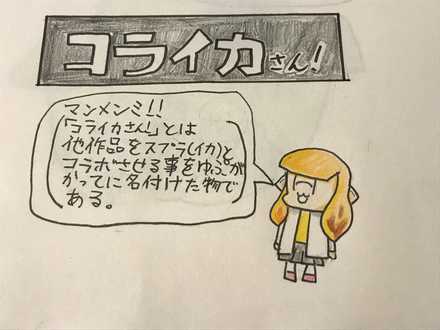 コライカさん!
マンメンミ!!
「コライカさん!」とは
他作品をスプラ(イカ)と
コラボさせる事をゆぷが
かってに名付けた物で
ある。